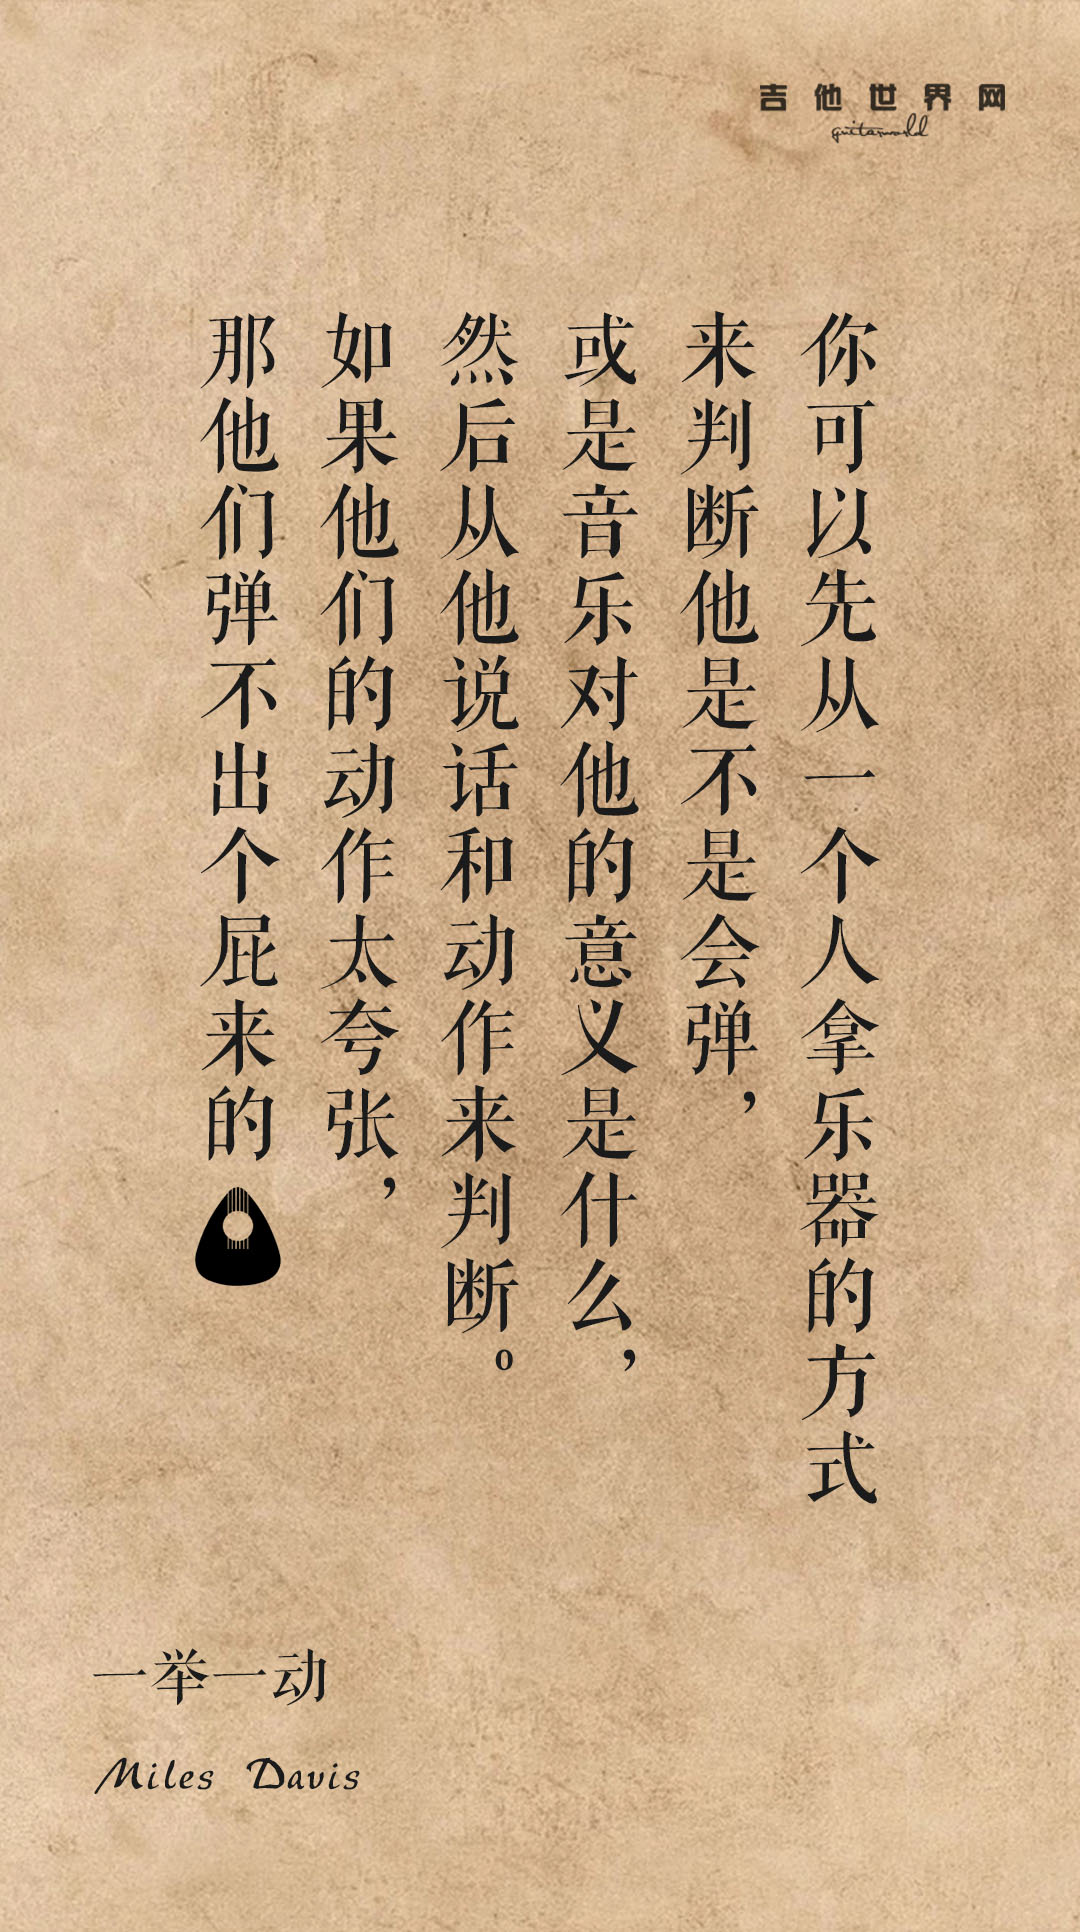 吉他世界网
guitarworld
你可以先从一个人拿乐器的方式
来判断他是不是会弹，
或是音乐对他的意义是什么，
然后从他说话和动作来判断。
如果他们的动作太夸张，
那他们弹不出个屁来的
一举一动
Miles Davis